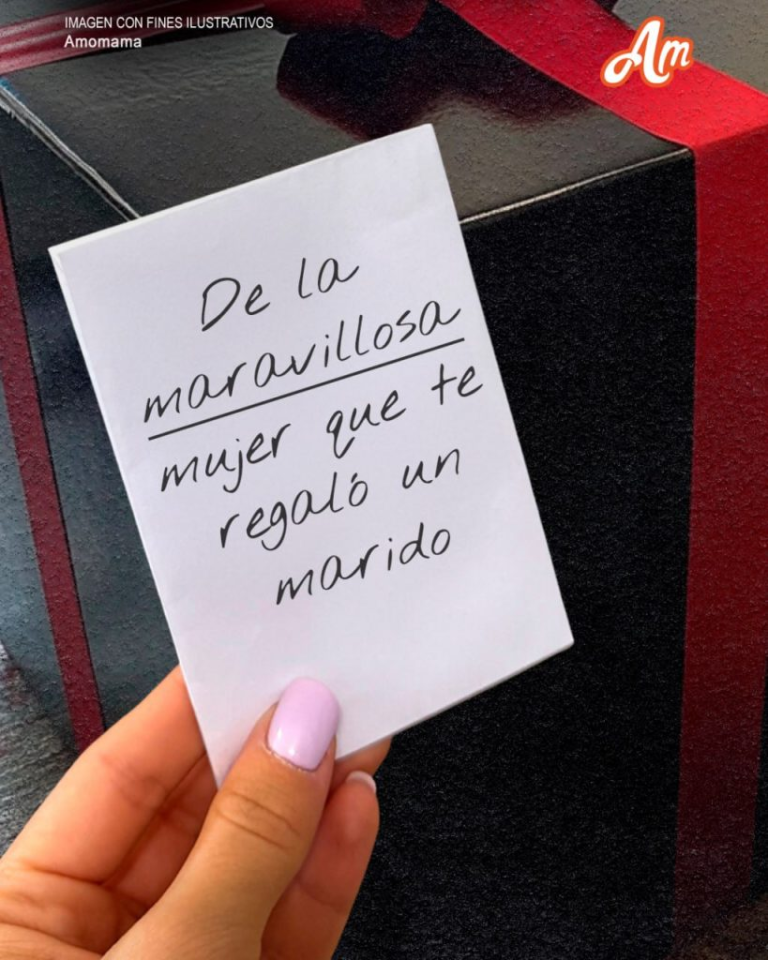 IMAGEN CON FINES ILUSTRATIVOS
Amomama
Am
De la
maravillosa
mujer que te
regaló un
marido